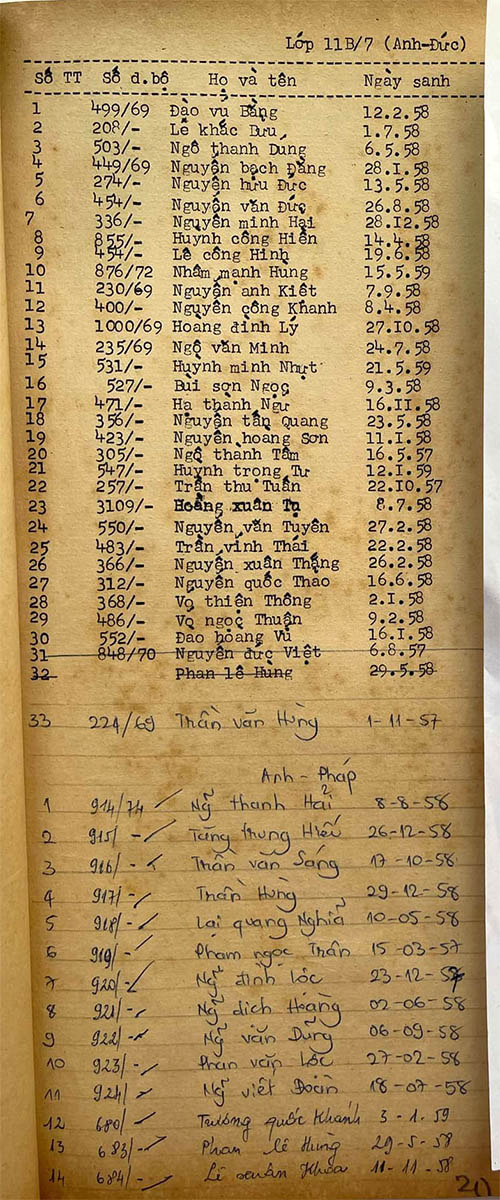 Lớp 11B/7 (Anh-Đức)
Số TT Số d.bộ Họ và tên Ngày sanh
1 499/69 Đào vũ Bằng 12.2.58
2 208/- Lê khắc Bưu 1.7.58
3 503/- Ngô thanh Dung 6.5.58
4 449/69 Nguyễn bạch Đằng 28.I.58
5 274/- Nguyễn hữu Đức 13.5.58
6 454/- Nguyễn văn Đức 26.8.58
7 336/- Nguyễn minh Hải 28.I2.58
8 855/- Huynh công Hiển 14.4.58
9 454/- Lê công Hinh 19.6.58
10 876/72 Nhâm mạnh Hung 15.5.59
11 230/69 Nguyễn anh Kiết 7.9.58
12 400/- Nguyễn công Khanh 8.4.58
13 1000/69 Hoang đình Lý 27.IO.58
14 235/69 Ngô văn Minh 24.7.58
15 531/- Huynh minh Nhựt 21.5.59
16 527/- Bùi sơn Ngọc 9.3.58
17 471/- Hạ thành Ngự 16.II.58
18 356/- Nguyễn tấn Quang 23.5.58
19 423/- Nguyễn hoang Sơn 11.I.58
20 305/- Ngô thanh Tâm 16.5.57
21 547/- Huynh trọng Tư 12.I.59
22 257/- Trần thu Tuấn 22.IO.57
23 3109/- Hoằng xuân Tụ 8.7.58
24 550/- Nguyễn văn Tuyên 27.2.58
25 483/- Trần vĩnh Thái 22.2.58
26 366/- Nguyễn xuân Thắng 26.2.58
27 312/- Nguyễn quốc Thao 16.6.58
28 368/- Võ thiện Thông 2.I.58
29 486/- Võ ngọc Thuận 9.2.58
30 552/- Đao hoang Vũ 16.I.58
31 848/70 Nguyễn đức Việt 6.8.57
32 Phan lê Hùng 29.5.58
33 224/69 Trần văn Hùng 1-11-57
Anh-Pháp
1 914/74 Ng̃ thanh Hải 8-8-58
2 915/- Tăng trung Hiếu 26-12-58
3 916/- Trần văn Sáng 17-10-58
4 917/- Trần Hùng 29-12-58
5 918/- Lại quang Nghĩa 10-05-58
6 919/- Phạm ngọc Trân 15-03-57
7 920/- Ng̃ đình Lóc 23-12-57
8 921/- Ng̃ dich Hoàng 02-06-58
9 922/- Ng̃ văn Dũng 06-09-58
10 923/- Phan văn Lốc 27-02-58
11 924/- Ng̃ viết Đoàn 18-07-58
12 680/- Trương quốc Khánh 3-1-59
13 683/- Phan lê Hùng 29-5-58
14 684/- Lê xuân Khoa 11-11-58